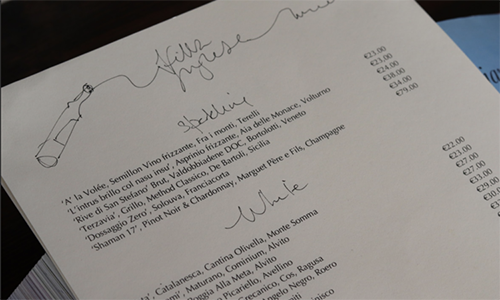 Villa
Inglese wine
Sparkling
'A' la Volée, Semillon Vino frizzante, Fra i monti, Terelli €23.00
'L'intrus brillo coi nasu insu', Asprinio frizzante, Aia delle Monace, Volturno €23.00
'Rive di San Stefano' Brut, Valdobbiadene DOC, Bortolotti, Veneto €24.00
'Terzavia', Grillo, Method Classico, De Bartoli, Sicilia €38.00
'Dossaggio Zero', Solouva, Franciacorta €34.00
'Shaman 17', Pinot Noir & Chardonnay, Marguet Père e Fils, Champagne €79.00
White
Catalanesca, Cantina Olivella, Monte Somma €22.00
Maturano, Cominium, Alvito €23.00
Alla Meta, Alvito €27.00
Picariello, Avellino €27.00
Grecanico, Cos, Ragusa €33.00
Angelo Negro, Roero €29.00